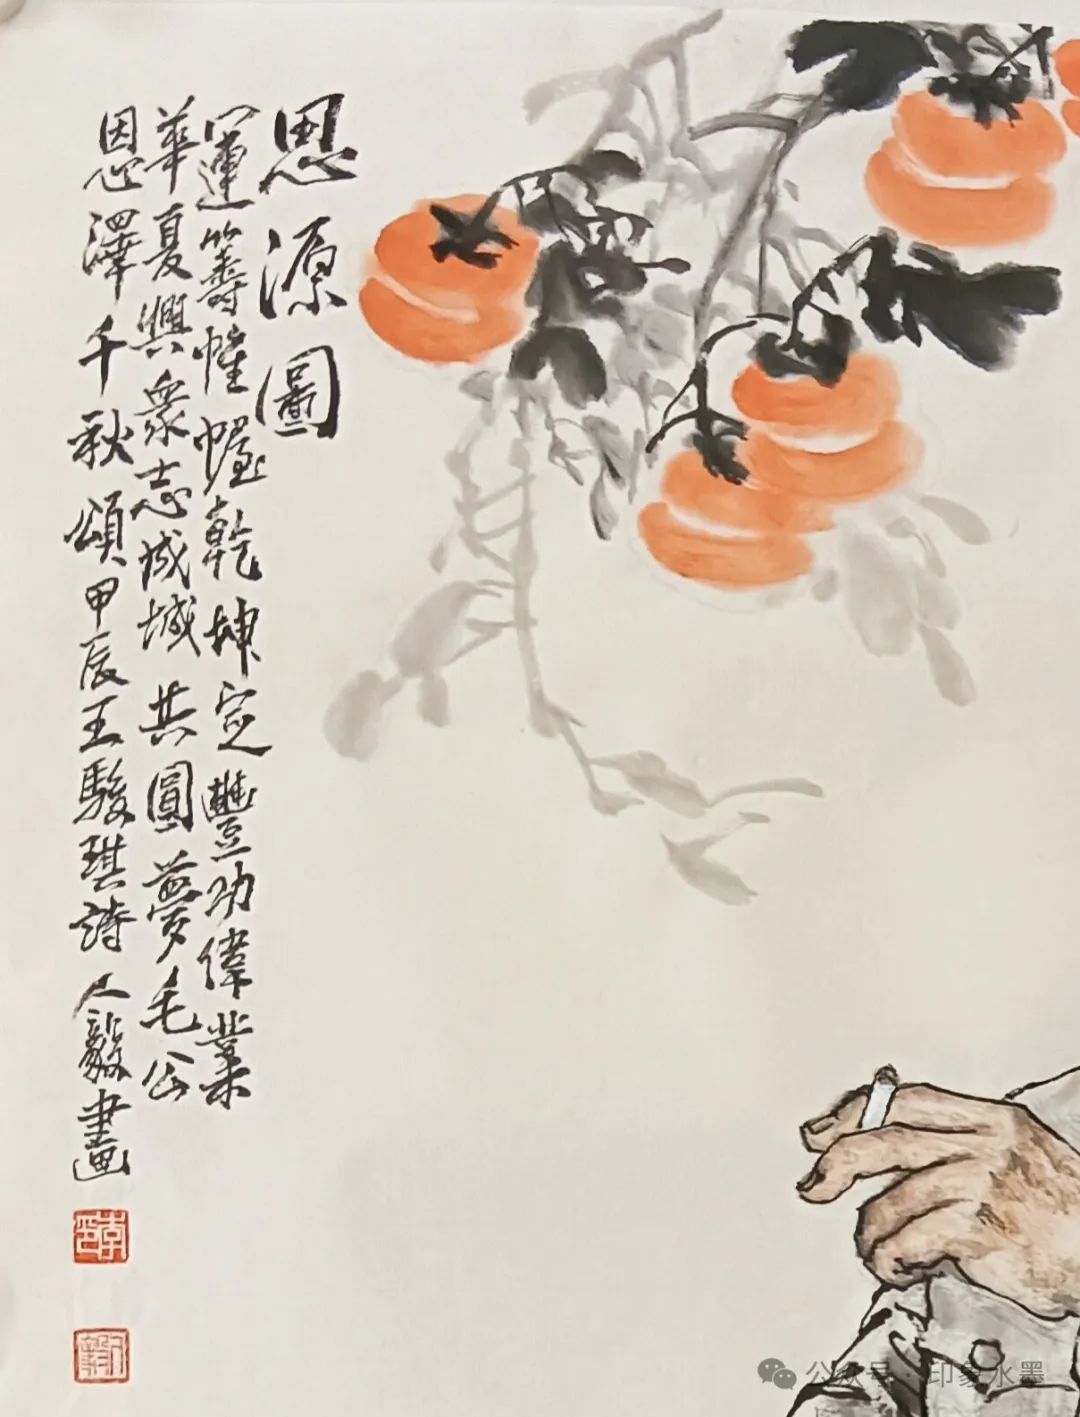 思源圖
運籌帷幄乾坤定豐功偉業
華夏興衆志成城共圓夢毛公
恩澤千秋頌甲辰王駿琪詩仁毅畫
李印
公众号 · 印象水墨